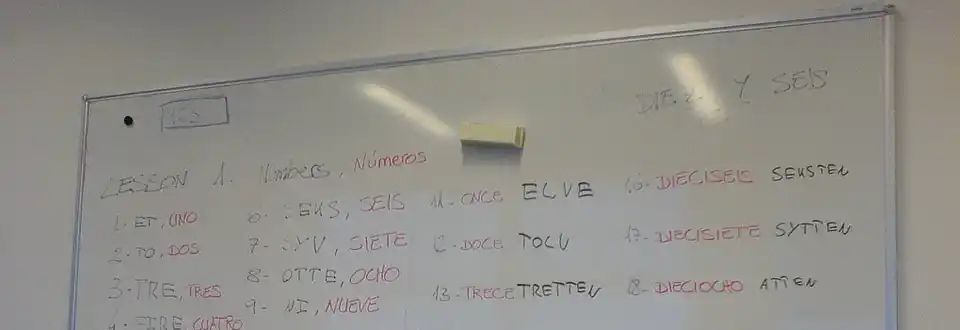 DIEZ Y SEIS
LESSON 1. Numbers, Números
1- ET, UNO
2- TO, DOS
3- TRE, TRES
4- FIRE, CUATRO
6- SEKS, SEIS
7- SYV, SIETE
8- OTTE, OCHO
9- NI, NUEVE
11- ONCE ELVE
12- DOCE TOLV
13- TRECE TRETTEN
16- DIECISEIS SEKSTEN
17- DIECISIETE SYTTEN
18- DIECIOCHO ATTEN